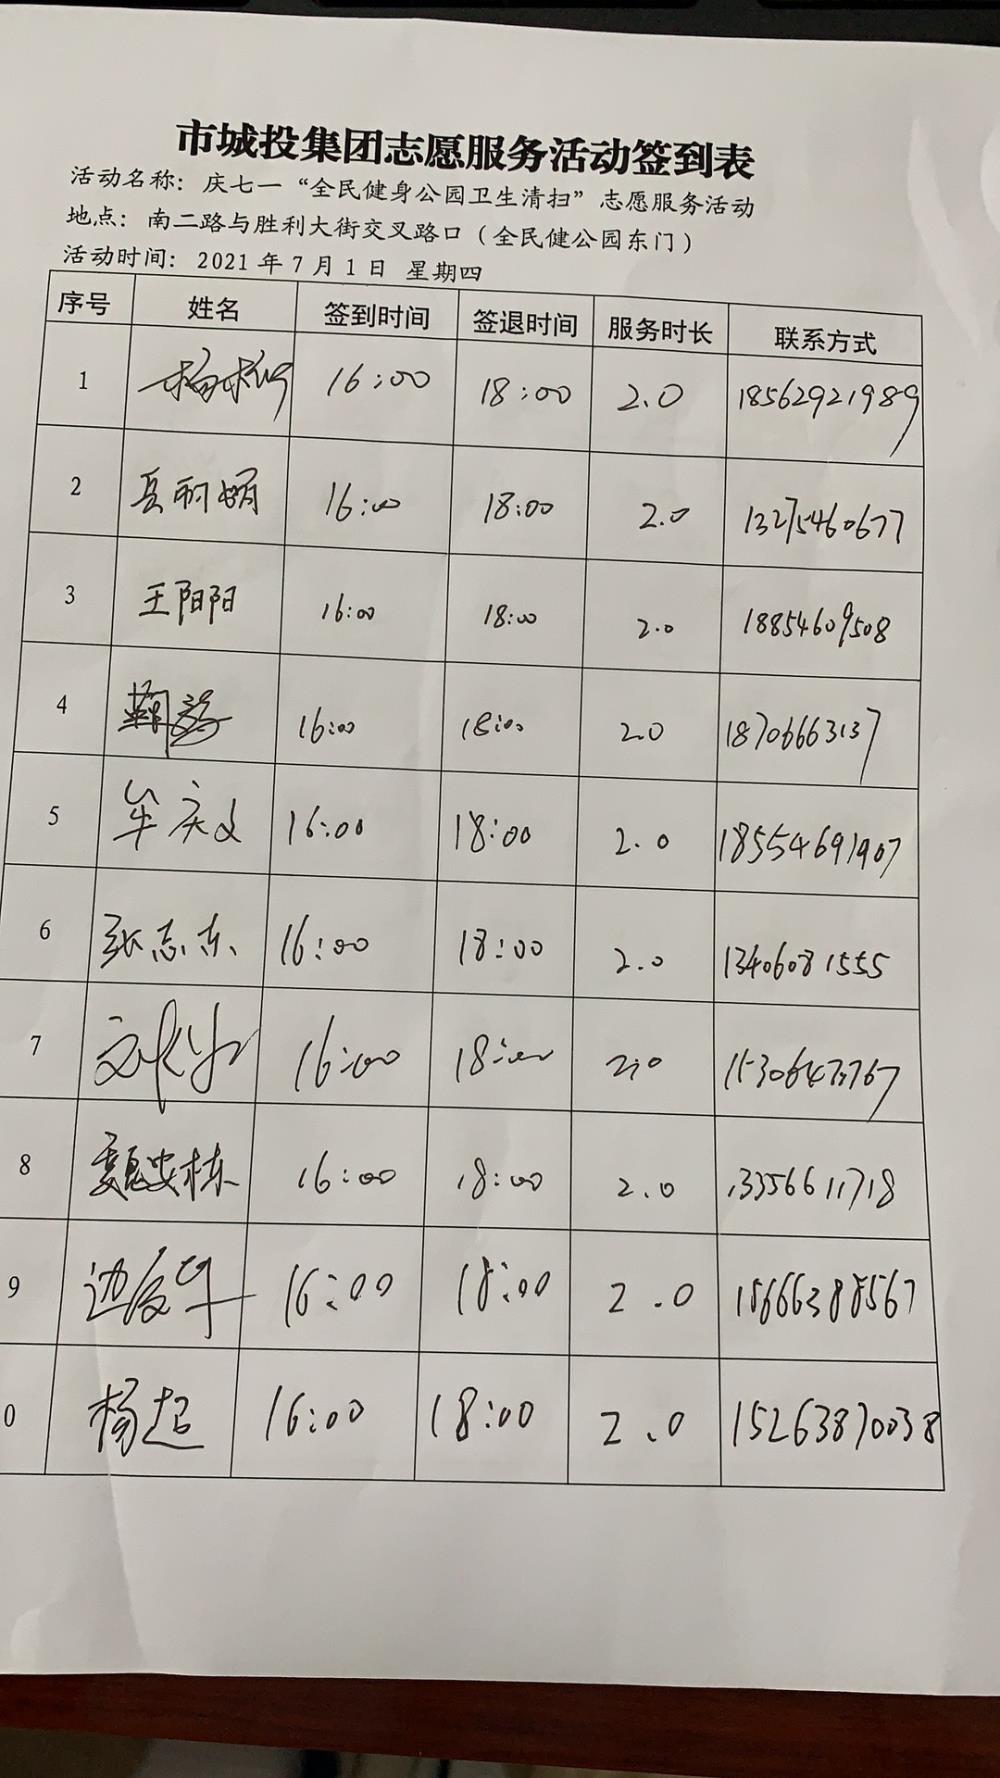 市城投集团志愿服务活动签到表
活动名称：庆七一“全民健身公园卫生清扫”志愿服务活动
地点：南二路与胜利大街交叉路口（全民健公园东门）
活动时间：2021年7月1日 星期四
序号 姓名 签到时间 签退时间 服务时长 联系方式
1 16:00 18:00 2.0 18562921989
2 16:00 18:00 2.0 13275460677
3 王阳阳 16:00 18:00 2.0 18854609508
4 16:00 18:00 2.0 18706663137
5 牟庆文 16:00 18:00 2.0 18554691907
6 张志东 16:00 18:00 2.0 13406081555
7 16:00 18:00 2.0
8 魏安栋 16:00 18:00 2.0 13356611718
9 16:00 18:00 2.0 15666388567
0 杨超 16:00 18:00 2.0 15263870038